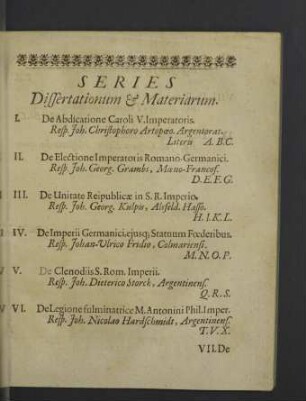 SERIES
Dissertationum & Materiarum.
I. De Abdicatione Caroli V. Imperatoris.
Resp. Joh. Christophoro Artopœo. Argentorat.
Literis A. B. C.
II. De Electione Imperatoris Romano-Germanici.
Resp. Joh. Georg. Grambs, Mœno-Francof.
D. E. F. G.
III. De Unitate Reipublicæ in S. R. Imperio.
Resp. Joh. Georg. Kulpis, Alsfeld. Hasso.
H. I. K. L.
IV. De Imperii Germanici, ejusq; Statuum Fœderibus.
Resp. Johan-Ulrico Fridio, Colmariensi.
M. N. O. P.
V. De Clenodiis S. Rom. Imperii.
Resp. Joh. Dieterico Storck, Argentinens.
Q. R. S.
VI. De Legione fulminatrice M. Antonini Phil. Imper.
Resp. Joh. Nicolao Hardschmidt, Argentinens.
T. V. X.
VII. De